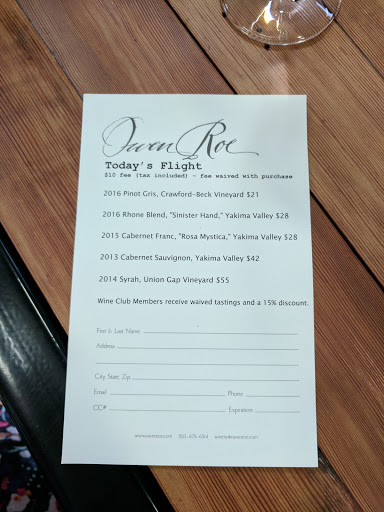 Owen Roe
Today's Flight
$10 fee (tax included) - fee waived with purchase
2016 Pinot Gris, Crawford-Beck Vineyard $21
2016 Rhone Blend, "Sinister Hand," Yakima Valley $28
2015 Cabernet Franc, "Rosa Mystica," Yakima Valley $28
2013 Cabernet Sauvignon, Yakima Valley $42
2014 Syrah, Union Gap Vineyard $55
Wine Club Members receive waived tastings and a 15% discount.
First & Last Name:
Address:
City, State, Zip:
Email: Phone:
CC#: Expiration:
www.owenroe.com